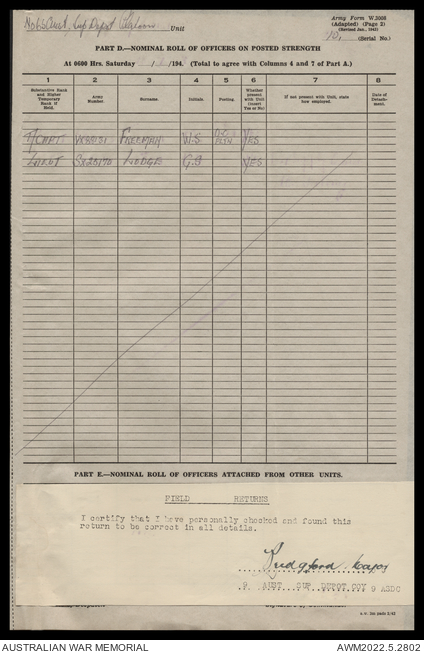 Unit
Army Form W.3008
(Adapted) (Page 2)
(Revised Jan., 1942)
(Serial No.)
PART D.—NOMINAL ROLL OF OFFICERS ON POSTED STRENGTH
At 0600 Hrs. Saturday / /194 . (Total to agree with Columns 4 and 7 of Part A.)
1 2 3 4 5 6 7 8
Substantive Rank and Higher Temporary Rank if Held.
Army Number.
Surname.
Initials.
Posting.
Whether present with Unit (Insert Yes or No)
If not present with Unit, state how employed.
Date of Detachment.
T/CAPT FREEMAN W.S YES
LIEUT SX25170 LODGE G.J YES
PART E.—NOMINAL ROLL OF OFFICERS ATTACHED FROM OTHER UNITS.
FIELD RETURNS
I certify that I have personally checked and found this
return to be correct in all details.
9 AUST SUP DEPOT COY 9 AASC
AUSTRALIAN WAR MEMORIAL AWM2022.5.2802